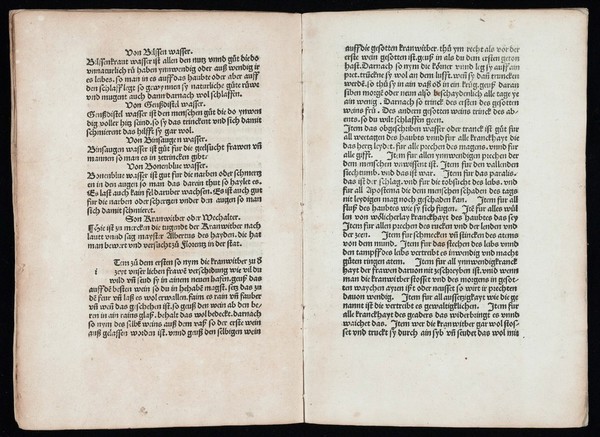 Von Bilssen wasser.
Bilssenkraut wasser ist allen den nutz vnnd gůt die do
vnnatürlich rů haben ynnwendig oder auß wendig ir
es leibes. so man in es auff das haubte oder aber auff
den schlaff legt so gewynnen sy natürliche gůte růwe
vnd mügent auch dann darnach wol schlaffen.
Von Genßdistel wasser.
Genßdistel wasser ist den menschen gůt die do ynwen
dig voller hitz seind. so sy das trinckent vnd sich damit
schmierent das hilfft sy gar wol.
Von Binsaugen wasser.
Binsaugen wasser ist gůt für die gelsucht frawen vñ
mannen so man es in zetrincken gibt.
Von Bonenblüe wasser.
Bonenblüe wasser ist gut für die narben oder schmertz
en in den augen so man das darein thůt so haylet es.
Es last auch kain fel darüber wachsen. Es ist auch gůt
für die narben oder schertzen vnder den augen so man
sich damit schmieret.
Von Kranwitber oder Wechalter.
Hie ist zů mercken die tugendt der Kranwitber nach
laut vnnd sag mayster Albertus des hayden. die hat
man bewert vnd versůcht zů Florentz in der stat.
Tem zů dem ersten so nym die kranwitber zwi
i
schen vnser lieben frawen verschidung wie vil du
wild vñ seüd sy in ainem neuen hafen. geüß das
auff den besten wein so du in gehaben magst. setz das zů
dē feür vñ laß es wol erwallen. faim es rain vñ sauber
vñ wañ das geschehen ist. so geüß den wein ab den be/
ren in ain rains glaß. behalt das wol bedeckt. darnach
so nym des selben weins auß dem vaß so der erste wein
auß gelassen worden ist. vnnd geüß den selbigen wein
auff die gesotten kranwitber. thů ym recht als vor der
erste wein gesotten ist. geüß in als du den ersten geton
hast. Darnach so nym die körner vnnd leg sy auff ain
pret. trückne sy wol an dem lufft. weñ sy dañ truncken
werdē. so thů sy in ain vaß oď in ein krůg. geüß daran
siben morgē oder neün also beschaydenlich alle tage ye
ain wenig. Darnach so trinck des ersten des gesotten
weins frü. Des andern gesotten weins trinck des ab/
ents. so du wilt schlaffen geen.
Item das obgeschriben wasser oder tranck ist gůt für
all wetagen des haubts vnnd für alle kranckhayt die
das hertz leydet. für alle prechen des magens. vnnd für
alle gifft. Item für allen ynnwendigen prechen der
dem menschen vnwissent ist. Item für den vallenden
siechtumb. vnd das ist war. Item für das paralis.
das ist der schlag. vnd für die tobsucht des leibs. vnd
für all Apostema die dem menschen schaden des tags
mit leydigen mag noch geschaden kan. Item für all
flüß des haubtes wie sy sich fügen. Itē für alles wül
len von wölicherlay kranckhayt des haubtes das sey
Item für allen prechen des rucken vnd der lenden vnd
der zen. Item für schmecken vñ stincken des atems
von dem mund. Item für das stechen des leibs vnnd
den tampff des leibs vertreibt es inwendig vnd machs
gůten ringen atem. Item für all ynnwendigkranck
hayt der frawen darvon nit zeschreyben ist. vnd wenn
man die kranwitber stosset vnd des morgens in gesot/
ten waychen ayren isset oder neüsset so wirt ir prechten
dauon wendig. Item für all aussetzigkayt wie die ge
nannt ist die vertreibt es gewaltigklichen. Item für
alle kranckhayt des geaders das widerbringt es vnnd
waichet das. Item wer die kranwitber gar wol stos/
set vnd truckt sy durch ain syb vñ seudet das wol mit